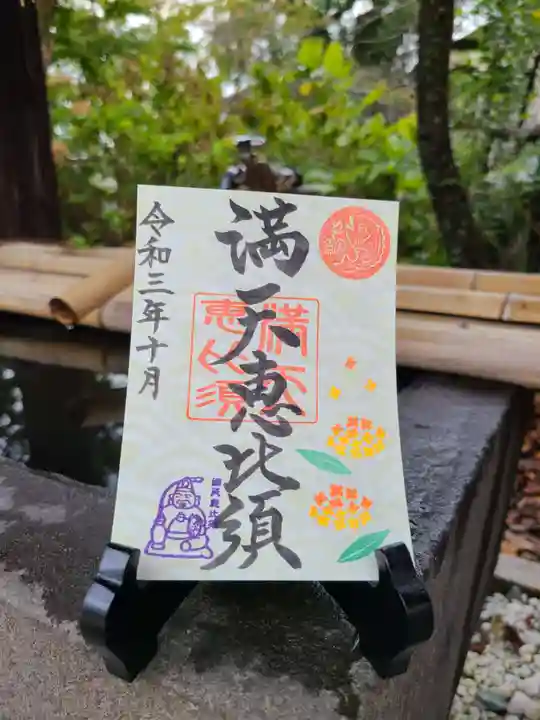 満天恵比須
満天
恵比須
令和三年十月